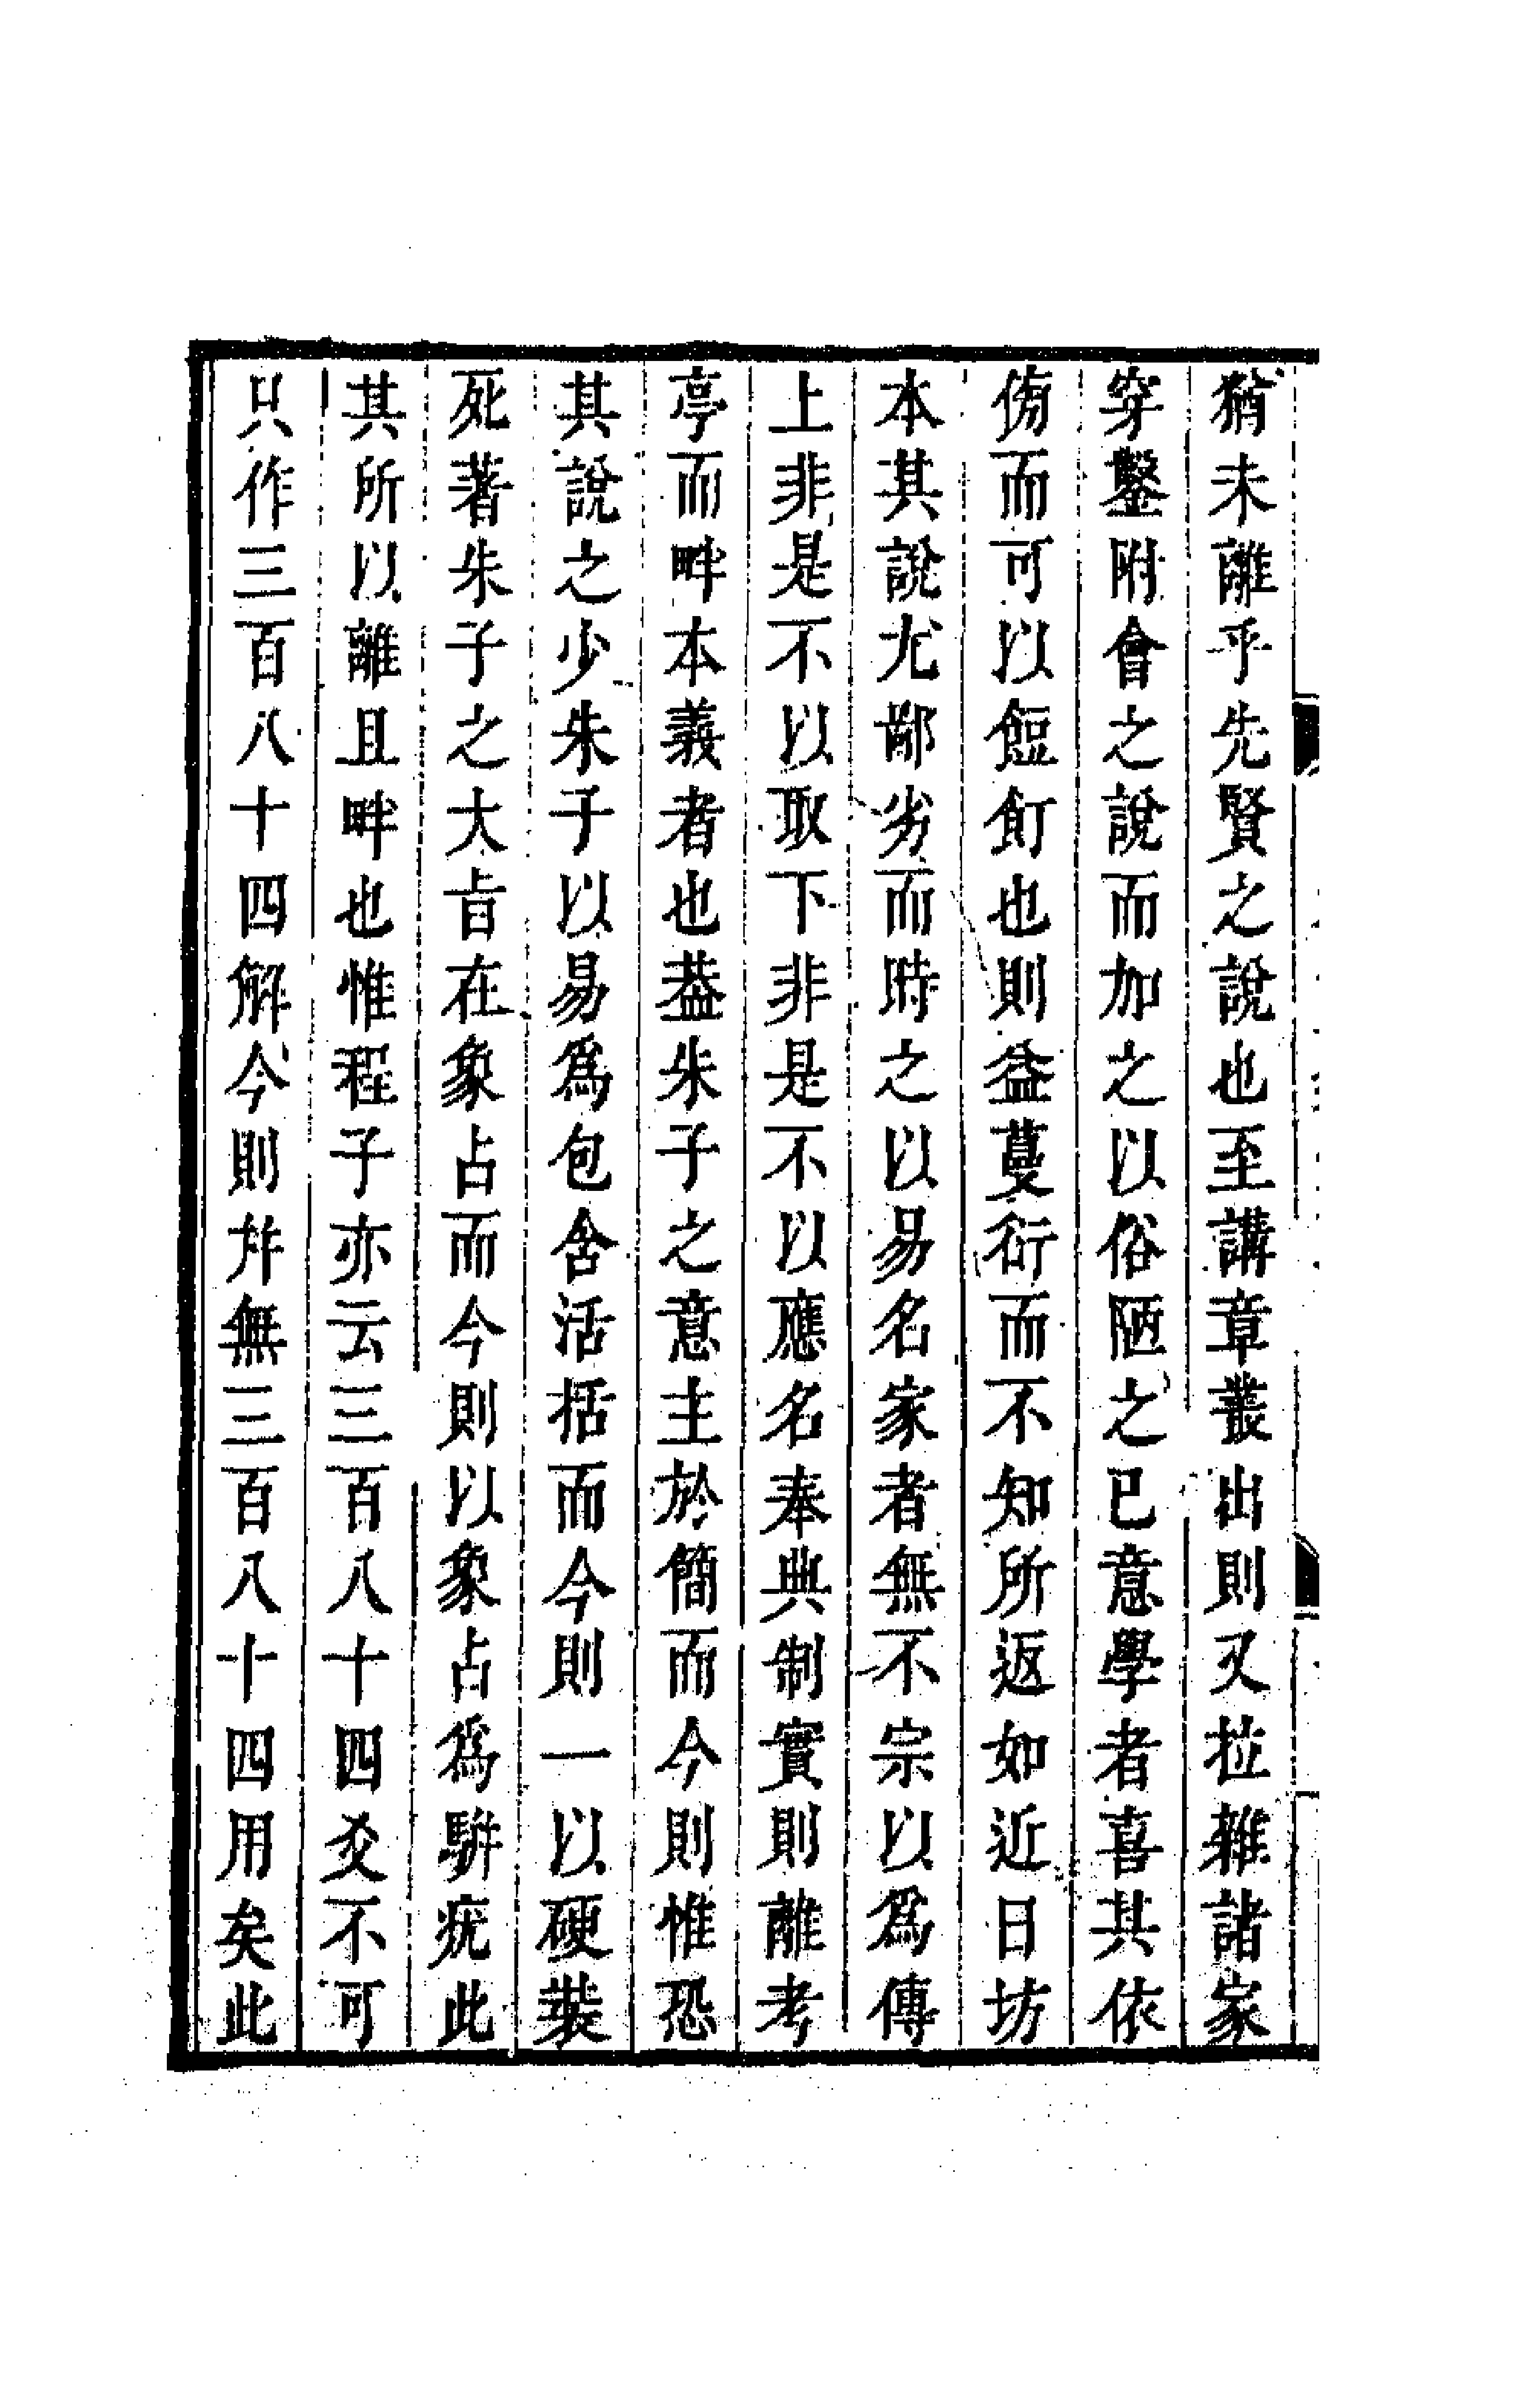 猶未離乎先賢之說也至講章叢出則又拉雜諸家
穿鑿附會之說而加之以俗陋之已意學者喜其依
傍而可以餖飣也則益蔓衍而不知所返如近日坊
本其說尤鄙劣而時之以易名家者無不宗以為傳
上非是不以取下非是不以應名奉典制實則離考
亭而畔本義者也葢朱子之意主於簡而今則惟恐
其說之少朱子以易為包含活括而今則一以硬裝
死著朱子之大旨在象占而今則以象占為駢疣此
其所以離且畔也惟程子亦云三百八十四爻不可
只作三百八十四解今則并無三百八十四用矣此